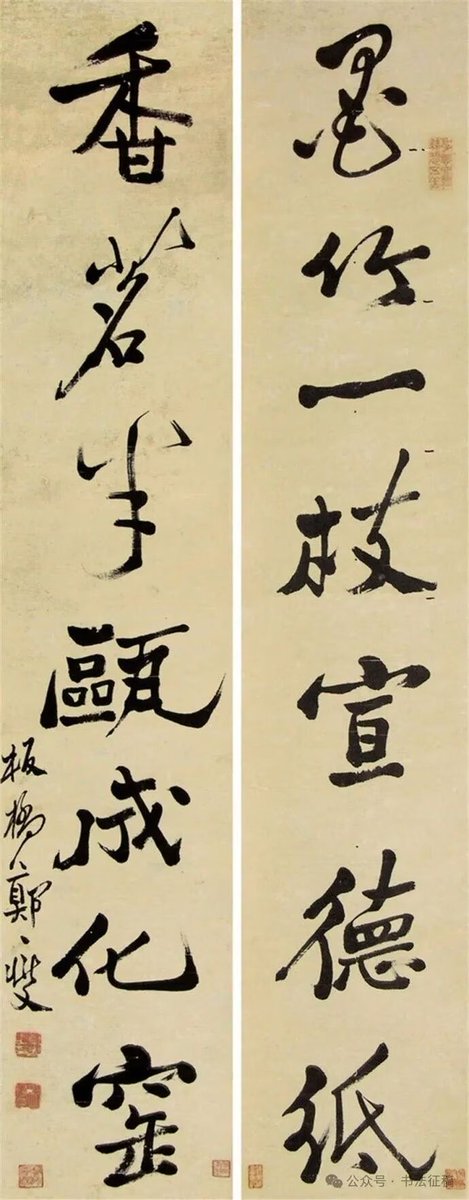 墨竹一枝宣德紙
香茗半甌成化窯
板橋鄭燮
公众号·书法征稿